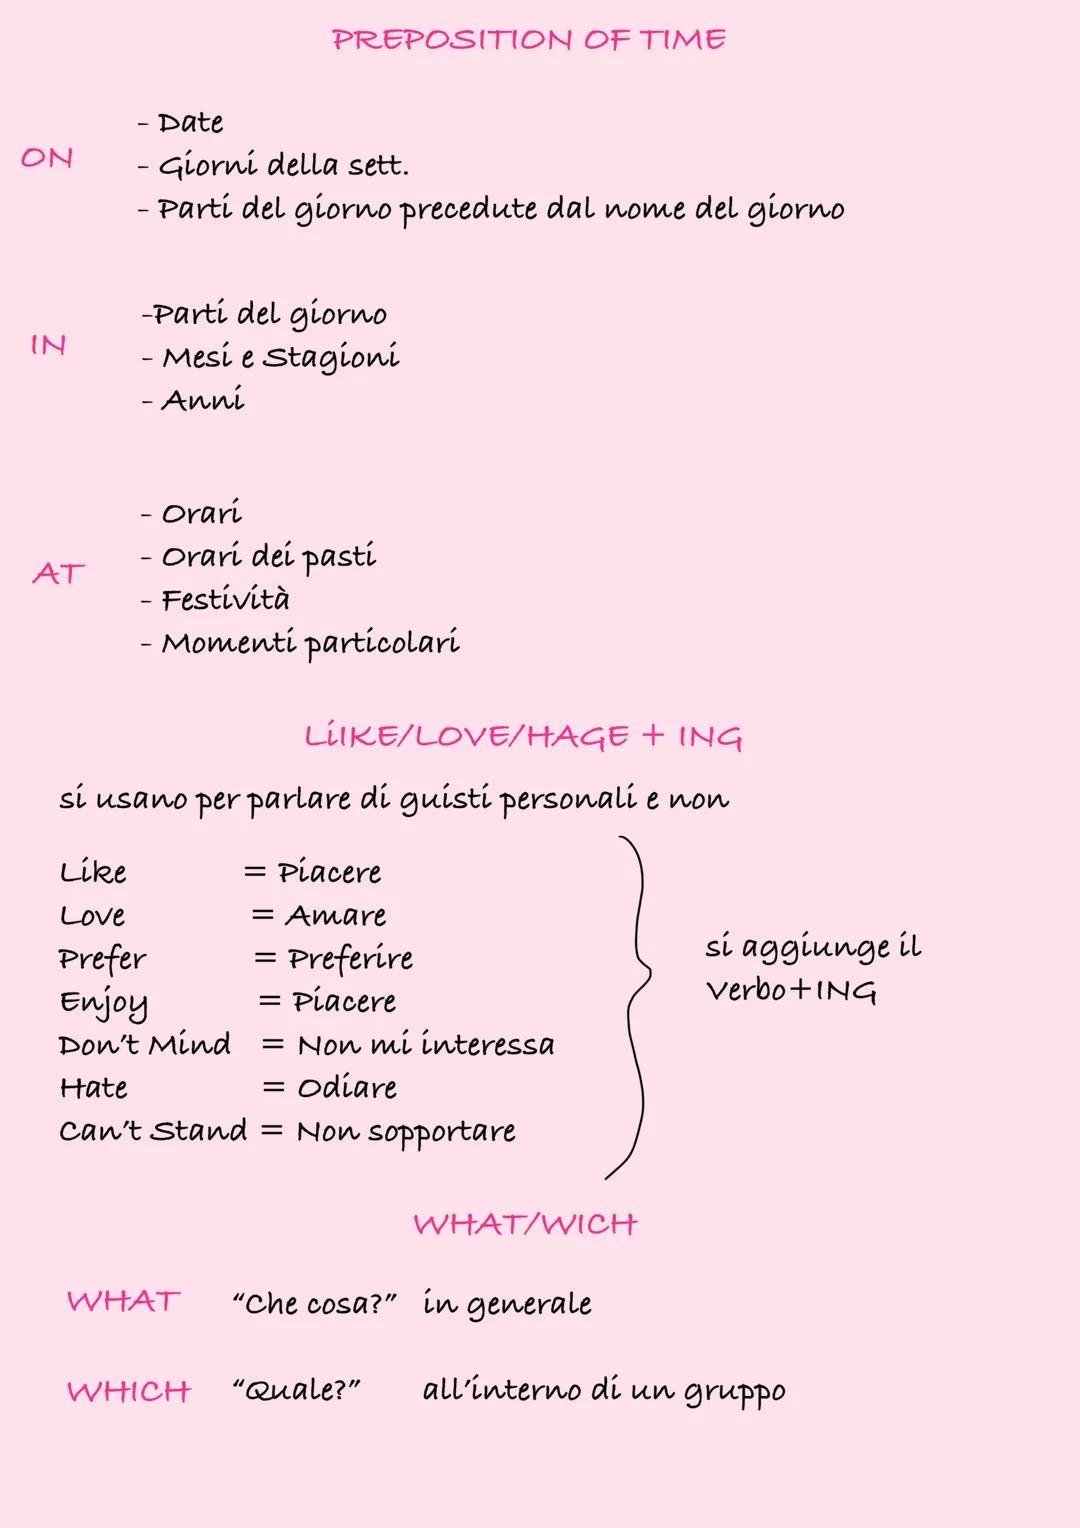 PREPOSITION OF TIME
ON
- Date
- Giorni della sett.
- Parti del giorno precedute dal nome del giorno
IN
-Parti del giorno
- Mesi e Stagioni
- Anni
AT
- Orari
- Orari dei pasti
- Festività
- Momenti particolari
LiIKE/LOVE/HAGE + ING
si usano per parlare di guisti personali e non
Like = Piacere
Love = Amare
Prefer = Preferire
Enjoy = Piacere
Don't Mind = Non mi interessa
Hate = Odiare
Can't Stand = Non sopportare
si aggiunge il
verbo+ING
WHAT/WICH
WHAT "Che cosa?" in generale
WHICH "Quale?" all'interno di un gruppo